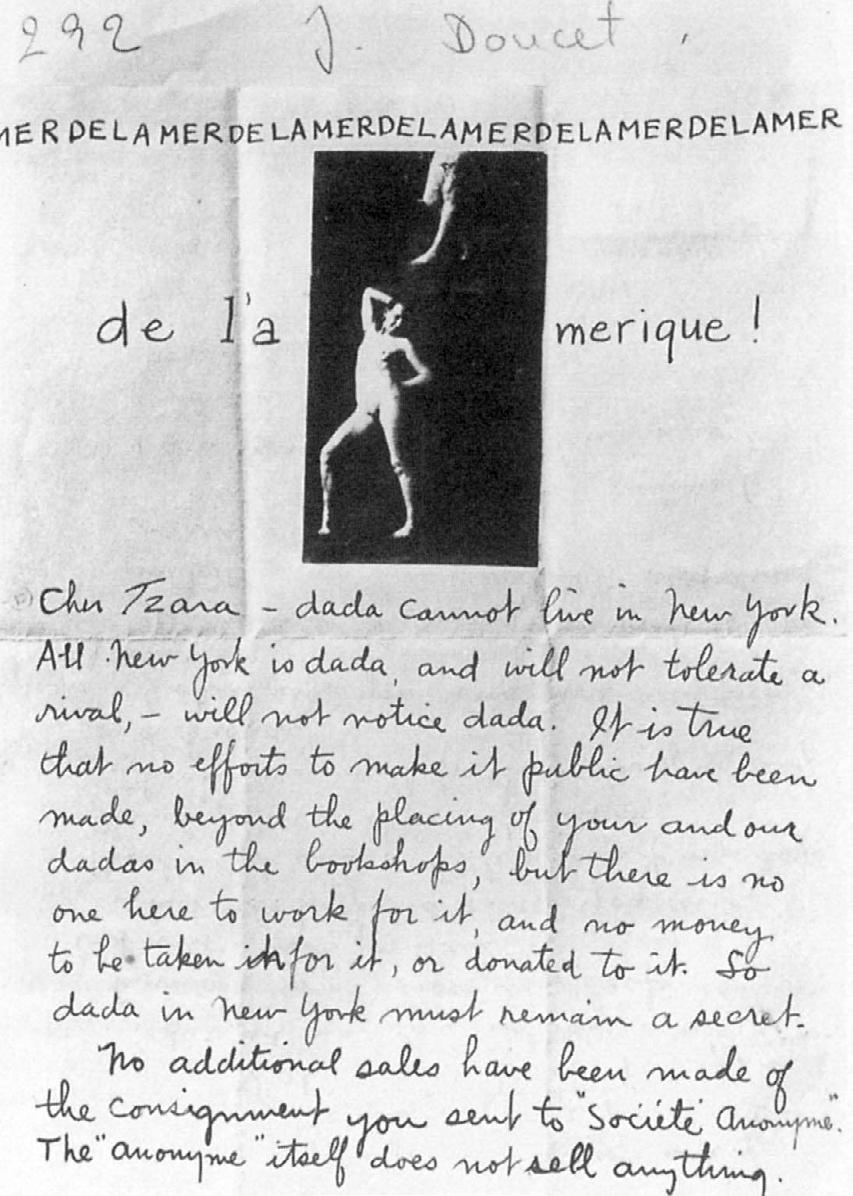 292 J. Doucet
MERDELAMERDELAMERDELAMERDELAMERDELAMER
de l'a merique !
Cher Tzara - dada cannot live in New York.
All New York is dada, and will not tolerate a
rival, - will not notice dada. It is true
that no efforts to make it public have been
made, beyond the placing of your and our
dadas in the bookshops, but there is no
one here to work for it, and no money
to be taken in for it, or donated to it. So
dada in New York must remain a secret.
No additional sales have been made of
the consignment you sent to "Société Anonyme."
The "anonyme" itself does not sell anything.